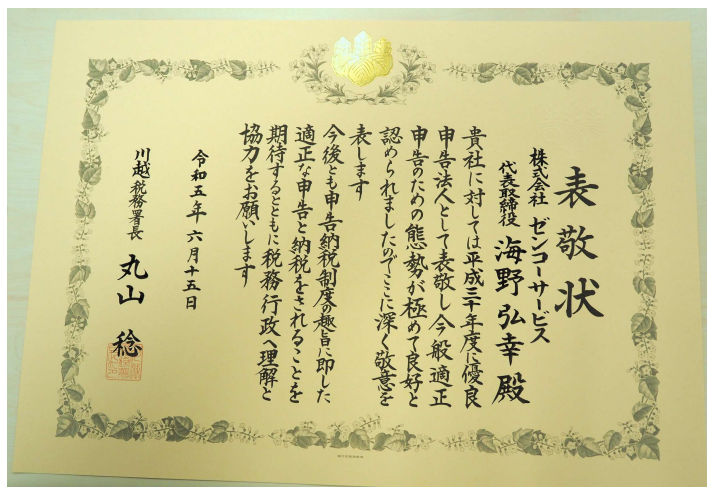 表敬状
株式会社 ゼンコーサービス
代表取締役 海野弘幸 殿
貴社に対しては平成三十年度に優良
申告法人として表敬し今般適正
申告のための態勢が極めて良好と
認められましたのでここに深く敬意を
表します
今後とも申告納税制度の趣旨に即した
適正な申告と納税をされることを
期待するとともに税務行政へ理解と
協力をお願いします
令和五年六月十五日
川越税務署長 丸山 稔